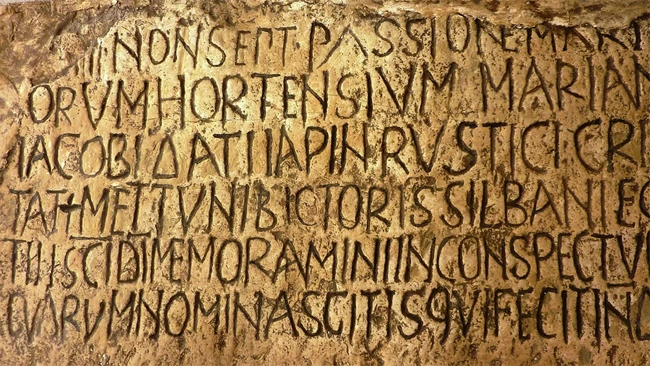 IIII NON SEPT PASSIONE MART
ORVM HORTENSIVM MARIAN
IACOBI DATI IAPIN RVSTICI CRI
TATI METTVNI BICTORIS SILBANI EG
TII SCI DI MEMORAMINI IN CONSPECTV
QVARVM NOMINA SCIT IS QVI FECIT IND